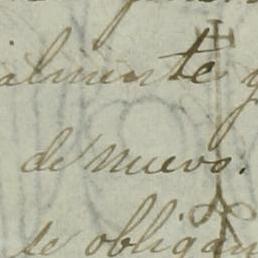 almente y
de nuevo.
se obligan